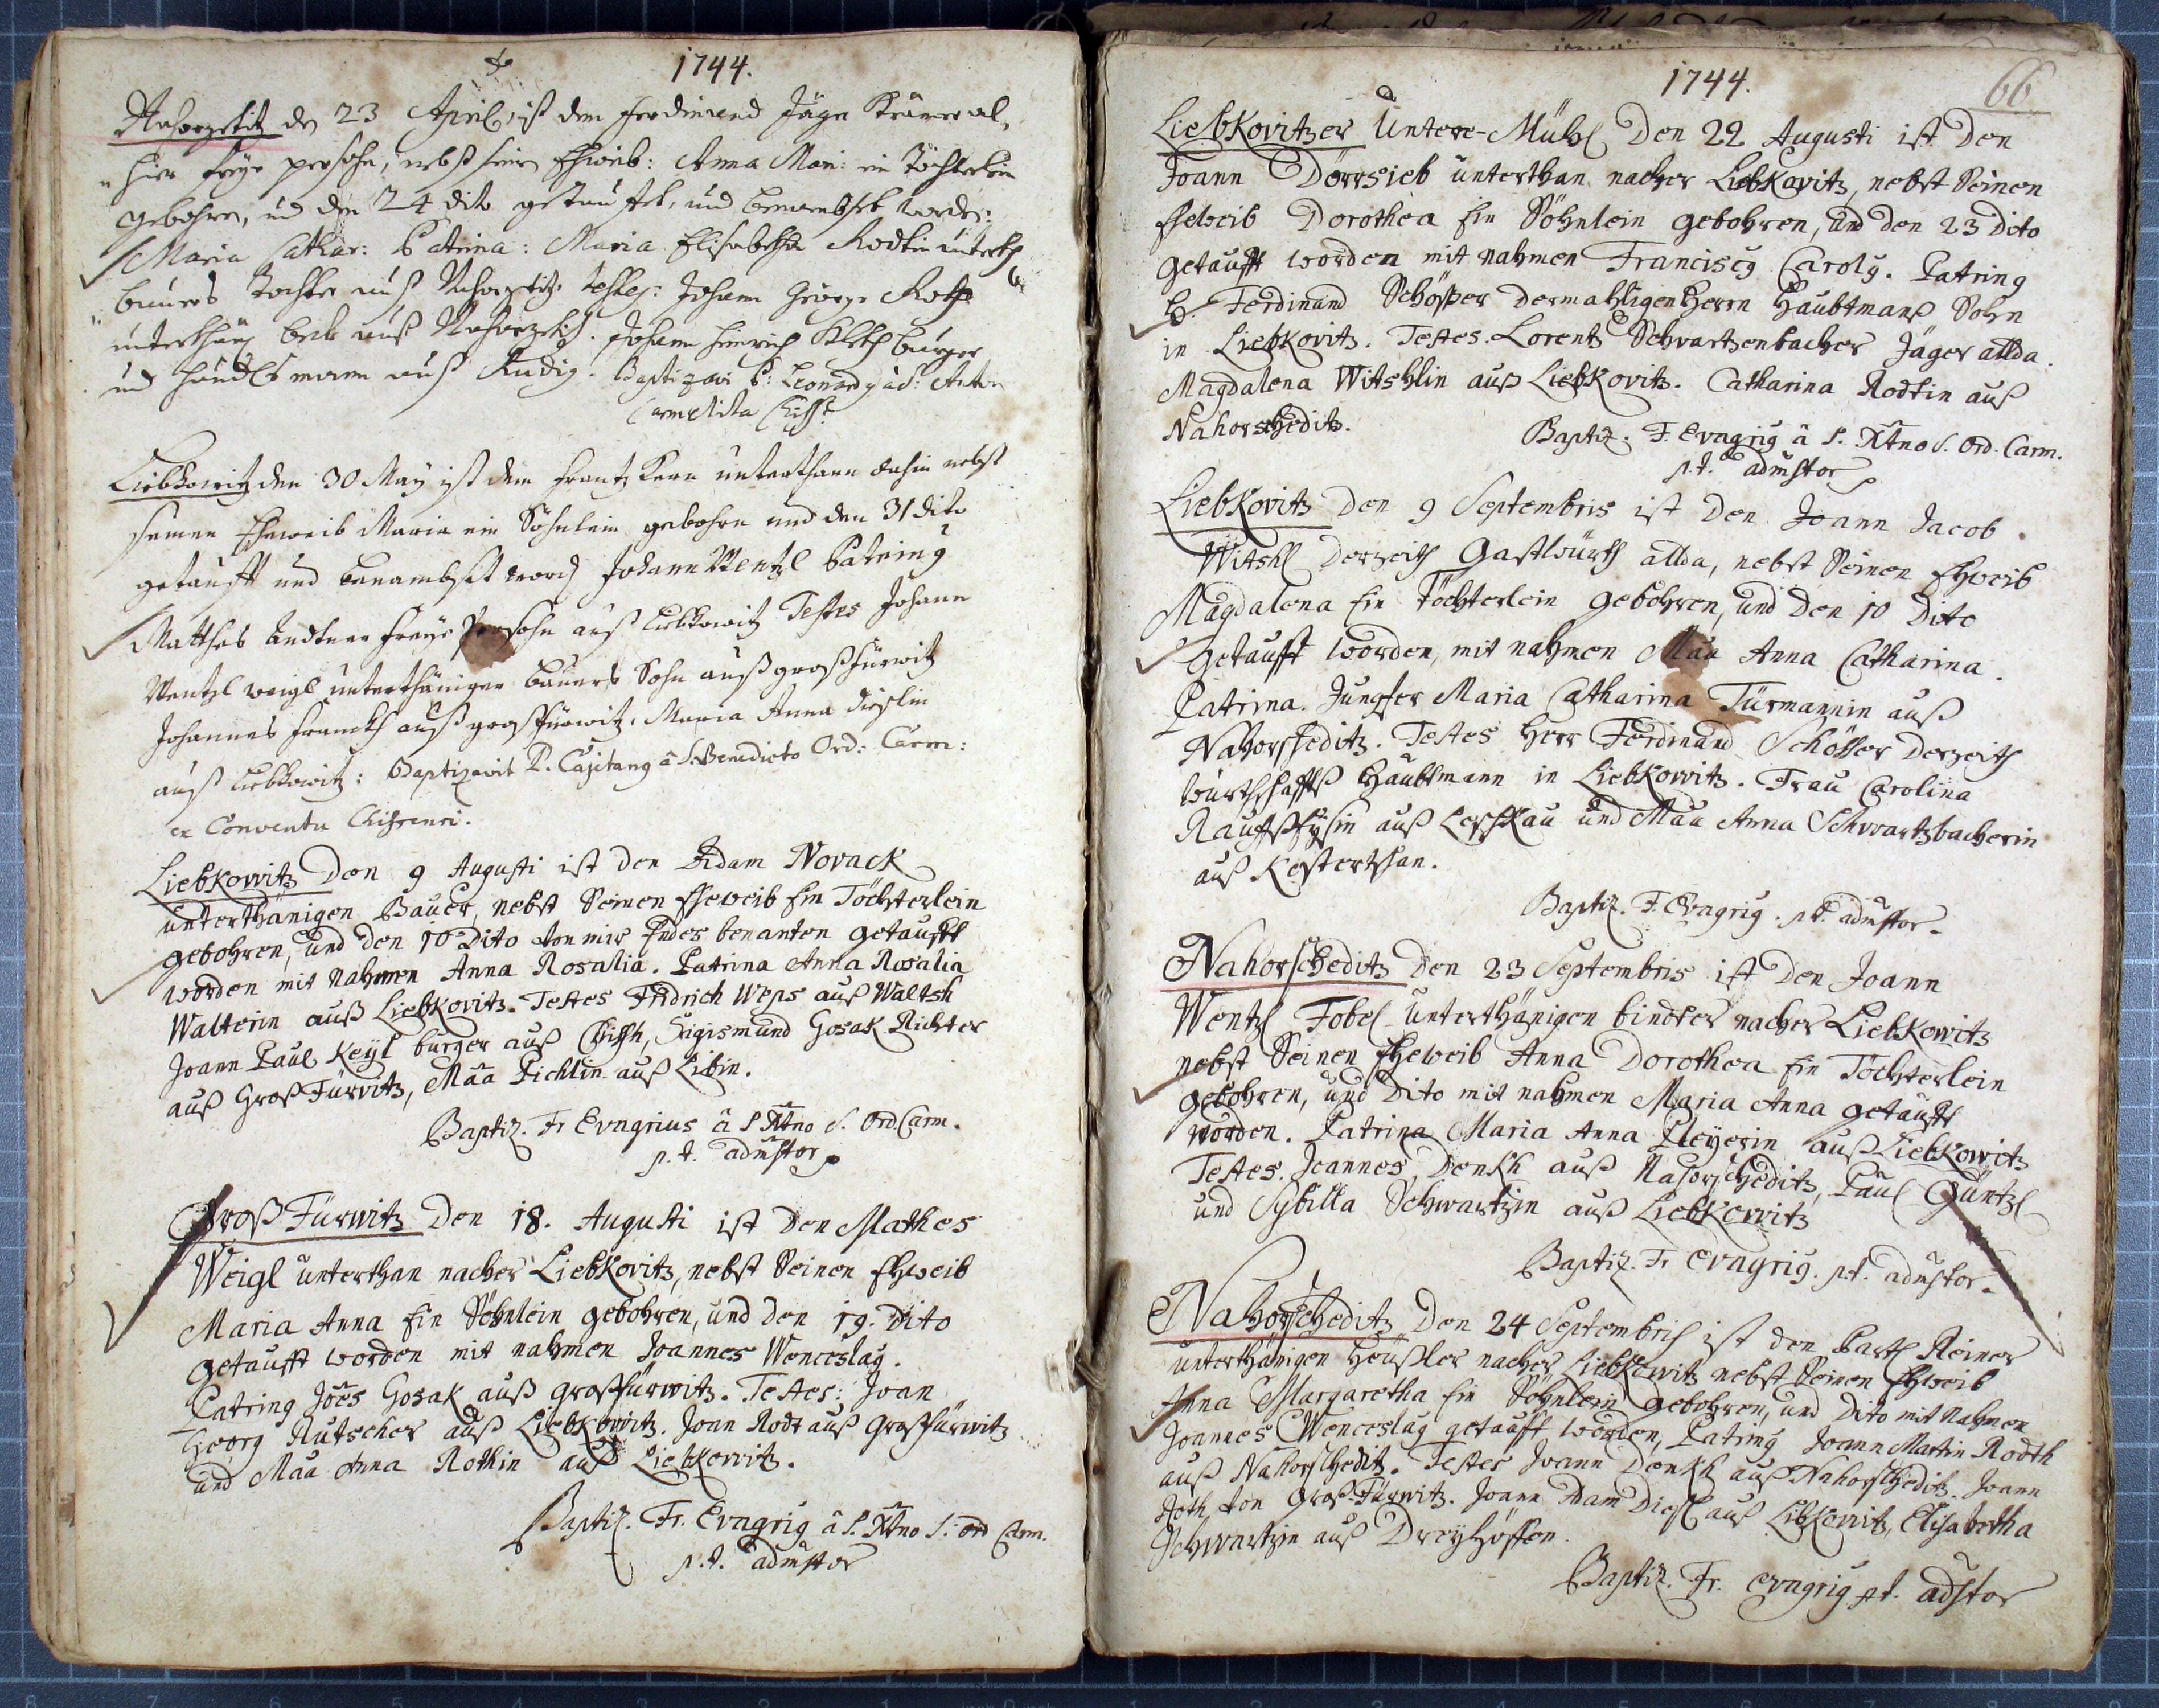 1744.
Nahorzetitz den 23 April, ist dem Ferdinand Jäger Krämer al-
hier freye persohn, nebst sein Ehweib: Anna Mari: ein Töchterlein
gebohren, und den 24 dito getauffet, und benambset worden:
Maria Cathar: Patrina: Maria Elisabetha Rodtin unterth
bauers Tochter auß Nahorzetitz. testes: Johann George Roth
unterthän beck auß Nahorzetitz. Johann Heinrich burger
und Handelsmann auß Rudig. Baptizavi P: Leonardg ad:
Carmelita
Liebkowitz den 30 May ist dem Frantz Kern unterthann dahin nebst
seinen Eheweib Maria ein Söhnlein gebohrn und den 31 dito
getaufft und benambset word Johann Wentzl Patring
Matthes Lndtner freye Persohn auß Liebkowitz Testes Johann
Wentzl weigl unterthäniger bauers Sohn auß großfürwitz
Johannes Franckh auß großfürwitz, Maria Anna dieslin
auß Liebkowitz: Baptizavit P. Cajetang â S. Benedicto Ord: Carm:
ex Conventu Chisensi.
Liebkowitz Den 9 Augusti ist den Adam Novack
unterthänigen Bauer, nebst Seinen Eheweib Ein Töchterlein
gebohren, und den 10 Dito von mir Endes benanten getaufft
worden mit Nahmen Anna Rosalia. Patrina Anna Rosalia
Walterin auß Liebkovitz. Testes Fridrich Weps auß Waltsh
Joann Paul Keyl burger auß Chissh, Sigismund Gosak Richter
auß Groß Fürvitz, Maa Pichlin auß Libin.
Baptiz. Fr Evagrius â S Xtno S. Ord Carm.
p. t. admstor
Groß Fürwitz Den 18. Augusti ist den Mathes
Weigl unterthan nacher Liebkovitz, nebst Seinen Ehweib
Maria Anna Ein Söhnlein gebohren, und den 19. Dito
getaufft worden mit nahmen Joannes Wenceslag.
Patring Joes Gosak auß großfürwitz. Testes: Joan
Georg Rutscher auß Liebkowitz. Joan Rodt auß Großfürwitz
und Maa Anna Rothin auß Liebkowitz.
Baptiz. Fr. Evagrig â S. Xtno S. Ord Carm.
p. t. admstor
1744.
66
Liebkovitzer Untere-Mühl Den 22 Augusti ist Den
Joann Dörrsieb unterthan nacher Liebkovitz, nebst Seinen
Eheweib Dorothea Ein Söhnlein gebohren, und den 23 Dito
getaufft worden mit nahmen Franciscg Carolg. Patring
H. Ferdinand Schösser dermahligen Herrn Haubtmanß Sohn
in Liebkovitz. Testes. Lorentz Schvartzenbacher Jäger allda.
Magdalena Witshlin auß Liebkovitz. Catharina Rodtin auß
Nahorschditz.
Baptiz. F. Evagrig â S. Xtno S. Ord. Carm.
p. t. admstor
Liebkovitz Den 9 Septembris ist Den Joann Jacob
Witshl Derzeith Gastwürth allda, nebst Seinen Ehweib
Magdalena Ein Töchterlein gebohren, und den 10 Dito
getaufft worden, mit nahmen Maa Anna Catharina.
Patrina. Jungfer Maria Catharina Türmannin auß
Nahorscheditz. Testes Herr Ferdinand Schösser Derzeith
würthschaffts Haubtmann in Liebkowitz. Frau Carolina
auß Leshkau und Maa Anna Schwartzbacherin
auß Kostertshan.
Baptiz. F. Evagrig. p. t. admstor.
Nahorscheditz Den 23 Septembris ist Den Joann
Wentzl Tobel unterthänigen bindter nacher Liebkowitz
nebst Seinen Eheweib Anna Dorothea Ein Töchterlein
gebohren, und Dito mit nahmen Maria Anna getaufft
worden. Patrina Maria Anna Pleyerin auß Liebkowitz
Testes. Joannes Denkh auß Nahorscheditz, Paul Güntzl
und Sybilla Schwartzin auß Liebkowitz
Baptiz. Fr Evagrig. p. t. admstor.
Nahorscheditz Den 24 Septembris ist den Bartl Reiner
unterthänigen Heußler nacher Liebkowitz nebst Seinen Ehweib
Anna Margaretha Ein Söhnlein gebohren, und Dito mit Nahmen
Joannes Wenceslag getaufft worden, Patring Joann Martin Rodth
auß Nahorscheditz. Testes Joann Denkh auß Nahorscheditz. Joann
Roth von Groß-Fürwitz. Joann Adam Diesl auß Libkowitz, Elisabetha
Schwartzin auß Dreyhöffen.
Baptiz. Fr. Evagrig p t. adstor